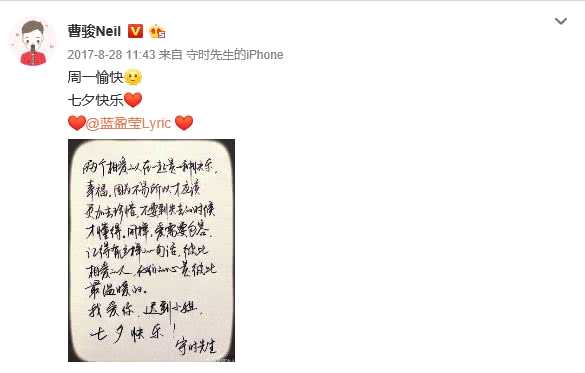 曹骏Neil
2017-8-28 11:43 来自 守时先生的iPhone
周一愉快
七夕快乐
@蓝盈莹Lyric
两个相爱的人在一起是一种快乐,
幸福。因为不易所以才应该
更加去珍惜。不要到失去的时候
才懂得。同样,爱需要包容。
记得有这样的一句话,彼此
相爱的人,他们的心是彼此
最温暖的。
我爱你,迟到小姐。
七夕快乐!
守时先生